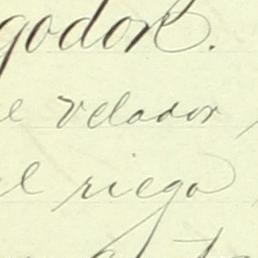 godon.
el velador
el riego